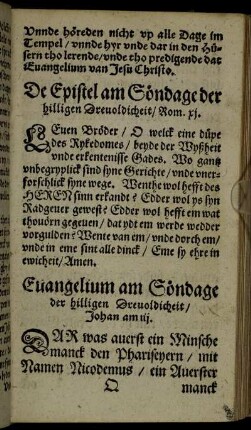 Vnnde höreden nicht vp alle Dage im
Tempel / vnnde hyr vnde dar in den Hü-
sern tho lerende / vnde tho predigende dat
Euangelium van Jesu Christo.
De Epistel am Söndage der
hilligen Dreuoldicheit / Rom. xj.
LEuen Bröder / O welck eine düpe
des Rykedomes / beyde der Wyßheit
vnde erkentenisse Gades. Wo gantz
vnbegryplick sind syne Gerichte / vnde vner-
forschlick syne wege. Wenthe wol hefft des
HEREN sinn erkandt? Edder wol ys syn
Radgeuer gewest? Edder wol hefft em wat
thouörn gegeuen / dat ydt em werde wedder
vorgulden? Wente van em / vnde dorch em /
vnde in eme sint alle dinck / Eme sy ehre in
ewicheit / Amen.
Euangelium am Söndage
der hilligen Dreuoldicheit /
Johan am iij.
DAR was auerst ein Minsche
manck den Phariseyern / mit
Namen Nicodemus / ein Auerster
O manck